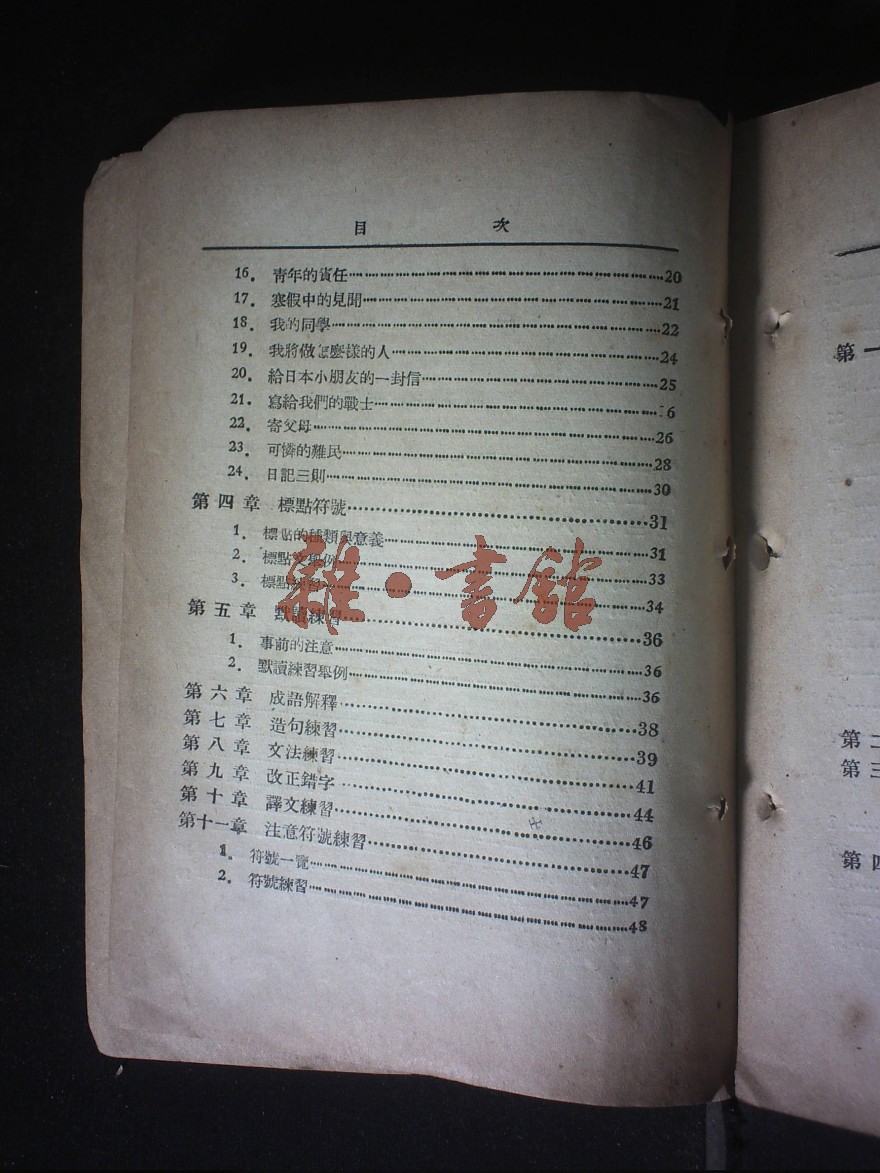 目 次
16. 靑年的責任 20
17. 寒假中的見聞 21
18. 我的同學 22
19. 我將做怎麽樣的人 24
20. 給日本小朋友的一封信 25
21. 寫給我們的戰士 6
22. 寄父母 26
23. 可憐的難民 28
24. 日記三則 30
第四章 標點符號 31
1. 標點的種類與意義 31
2. 標點 舉例 33
3. 標點練習 34
第五章 默讀練習 36
1. 事前的注意 36
2. 默讀練習舉例 36
第六章 成語解釋 38
第七章 造句練習 39
第八章 文法練習 41
第九章 改正錯字 44
第十章 譯文練習 46
第十一章 注意符號練習 47
1. 符號一覽 47
2. 符號練習 48
雜·書館
第一
第二
第三
第四